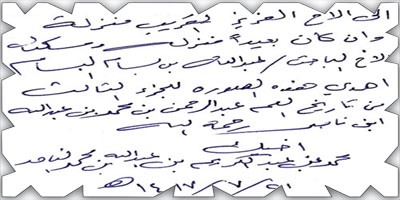 الى الاخ العزيز القريب منزلة
وان كان بعيداً منزله ومسكنه
لاخ الباحث / عبدالله بن بسام البسام
اهدي هذه الصوره للجزء الثالث
من تاريخ العم عبدالرحمن بن محمد بن عبدالله
ابن ناصر رحمة الله
اخيك
محمد بن عبدالكريم بن عبدالله بن محمد الناصر
٢١ / ٧ / ١٤١٧ هـ